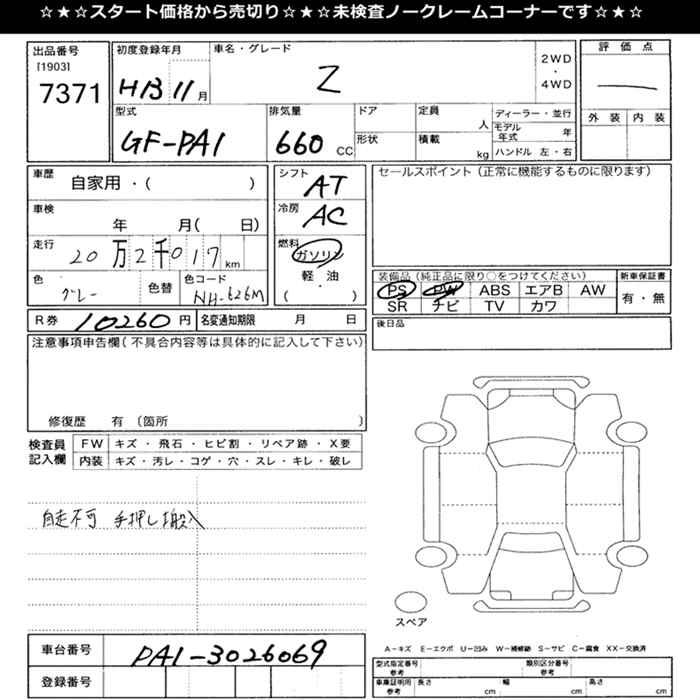 ☆★☆★スタート価格から売切り☆★☆★未検査ノークレームコーナーです☆★☆
出品番号 [1903] 7371
初度登録年月 H13 11 月
車名・グレード Z
2WD ・ 4WD
評価点 ―
外装 内装
型式 GF-PA1
排気量 660 CC
ドア
形状
定員 人
積載 kg
ディーラー・並行
モデル年式 年
ハンドル 左・右
車歴 自家用・( )
車検 年 月( 日)
走行 20万2千017 km
色 グレー 色替 色コード NH-626M
シフト AT
冷房 AC
燃料 ガソリン 軽・油 ( )
セールスポイント(正常に機能するものに限ります)
装備品(純正品に限り○をつけてください)
PS PW ABS エアB AW
SR ナビ TV カワ
新車保証書 有・無
R券 10260 円 名変通知期限 月 日
後日品
注意事項申告欄(不具合内容等は具体的に記入して下さい)
修復歴 有 (箇所 )
検査員記入欄
FW キズ・飛石・ヒビ割・リペア跡・X要
内装 キズ・汚レ・コゲ・穴・スレ・キレ・破レ
自走不可 手押し搬入
スペア
車台番号 PA1-3026069
登録番号
A―キズ E―エクボ U―凹み W―補修跡 S―サビ C―腐食 XX―交換済
型式指定番号 参考 類別区分番号 参考
車庫証明用 参考 長さ cm 幅 cm 高さ cm